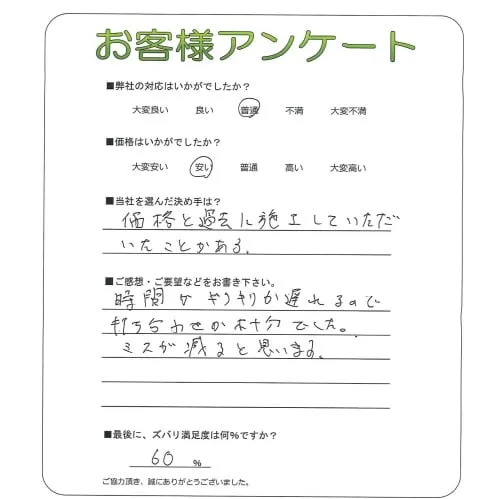 お客様アンケート
■弊社の対応はいかがでしたか？
大変良い 良い 普通 不満 大変不満
■価格はいかがでしたか？
大変安い 安い 普通 高い 大変高い
■当社を選んだ決め手は？
価格と過去に施工していただ
いたことがある。
■ご感想・ご要望などをお書き下さい。
時間が ぎりぎりか遅れるので
打ち合わせが でした。
ミスが減ると思います。
■最後に、ズバリ満足度は何％ですか？
60 ％
ご協力頂き、誠にありがとうございました。